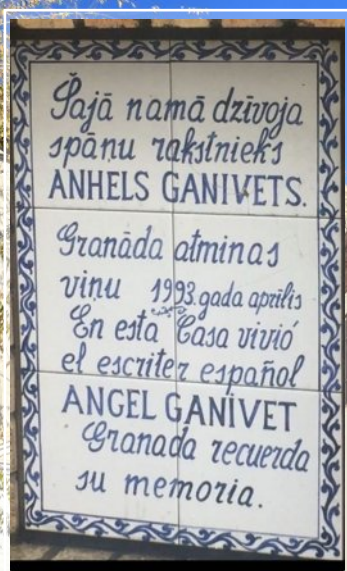 Šajā namā dzīvoja
spāņu rakstnieks
ANHELS GANIVETS.
Granāda atminas
viņu 1993.gada aprīlis
En esta Casa vivió
el escriter español
ANGEL GANIVET
Granada recuerda
su memoria.